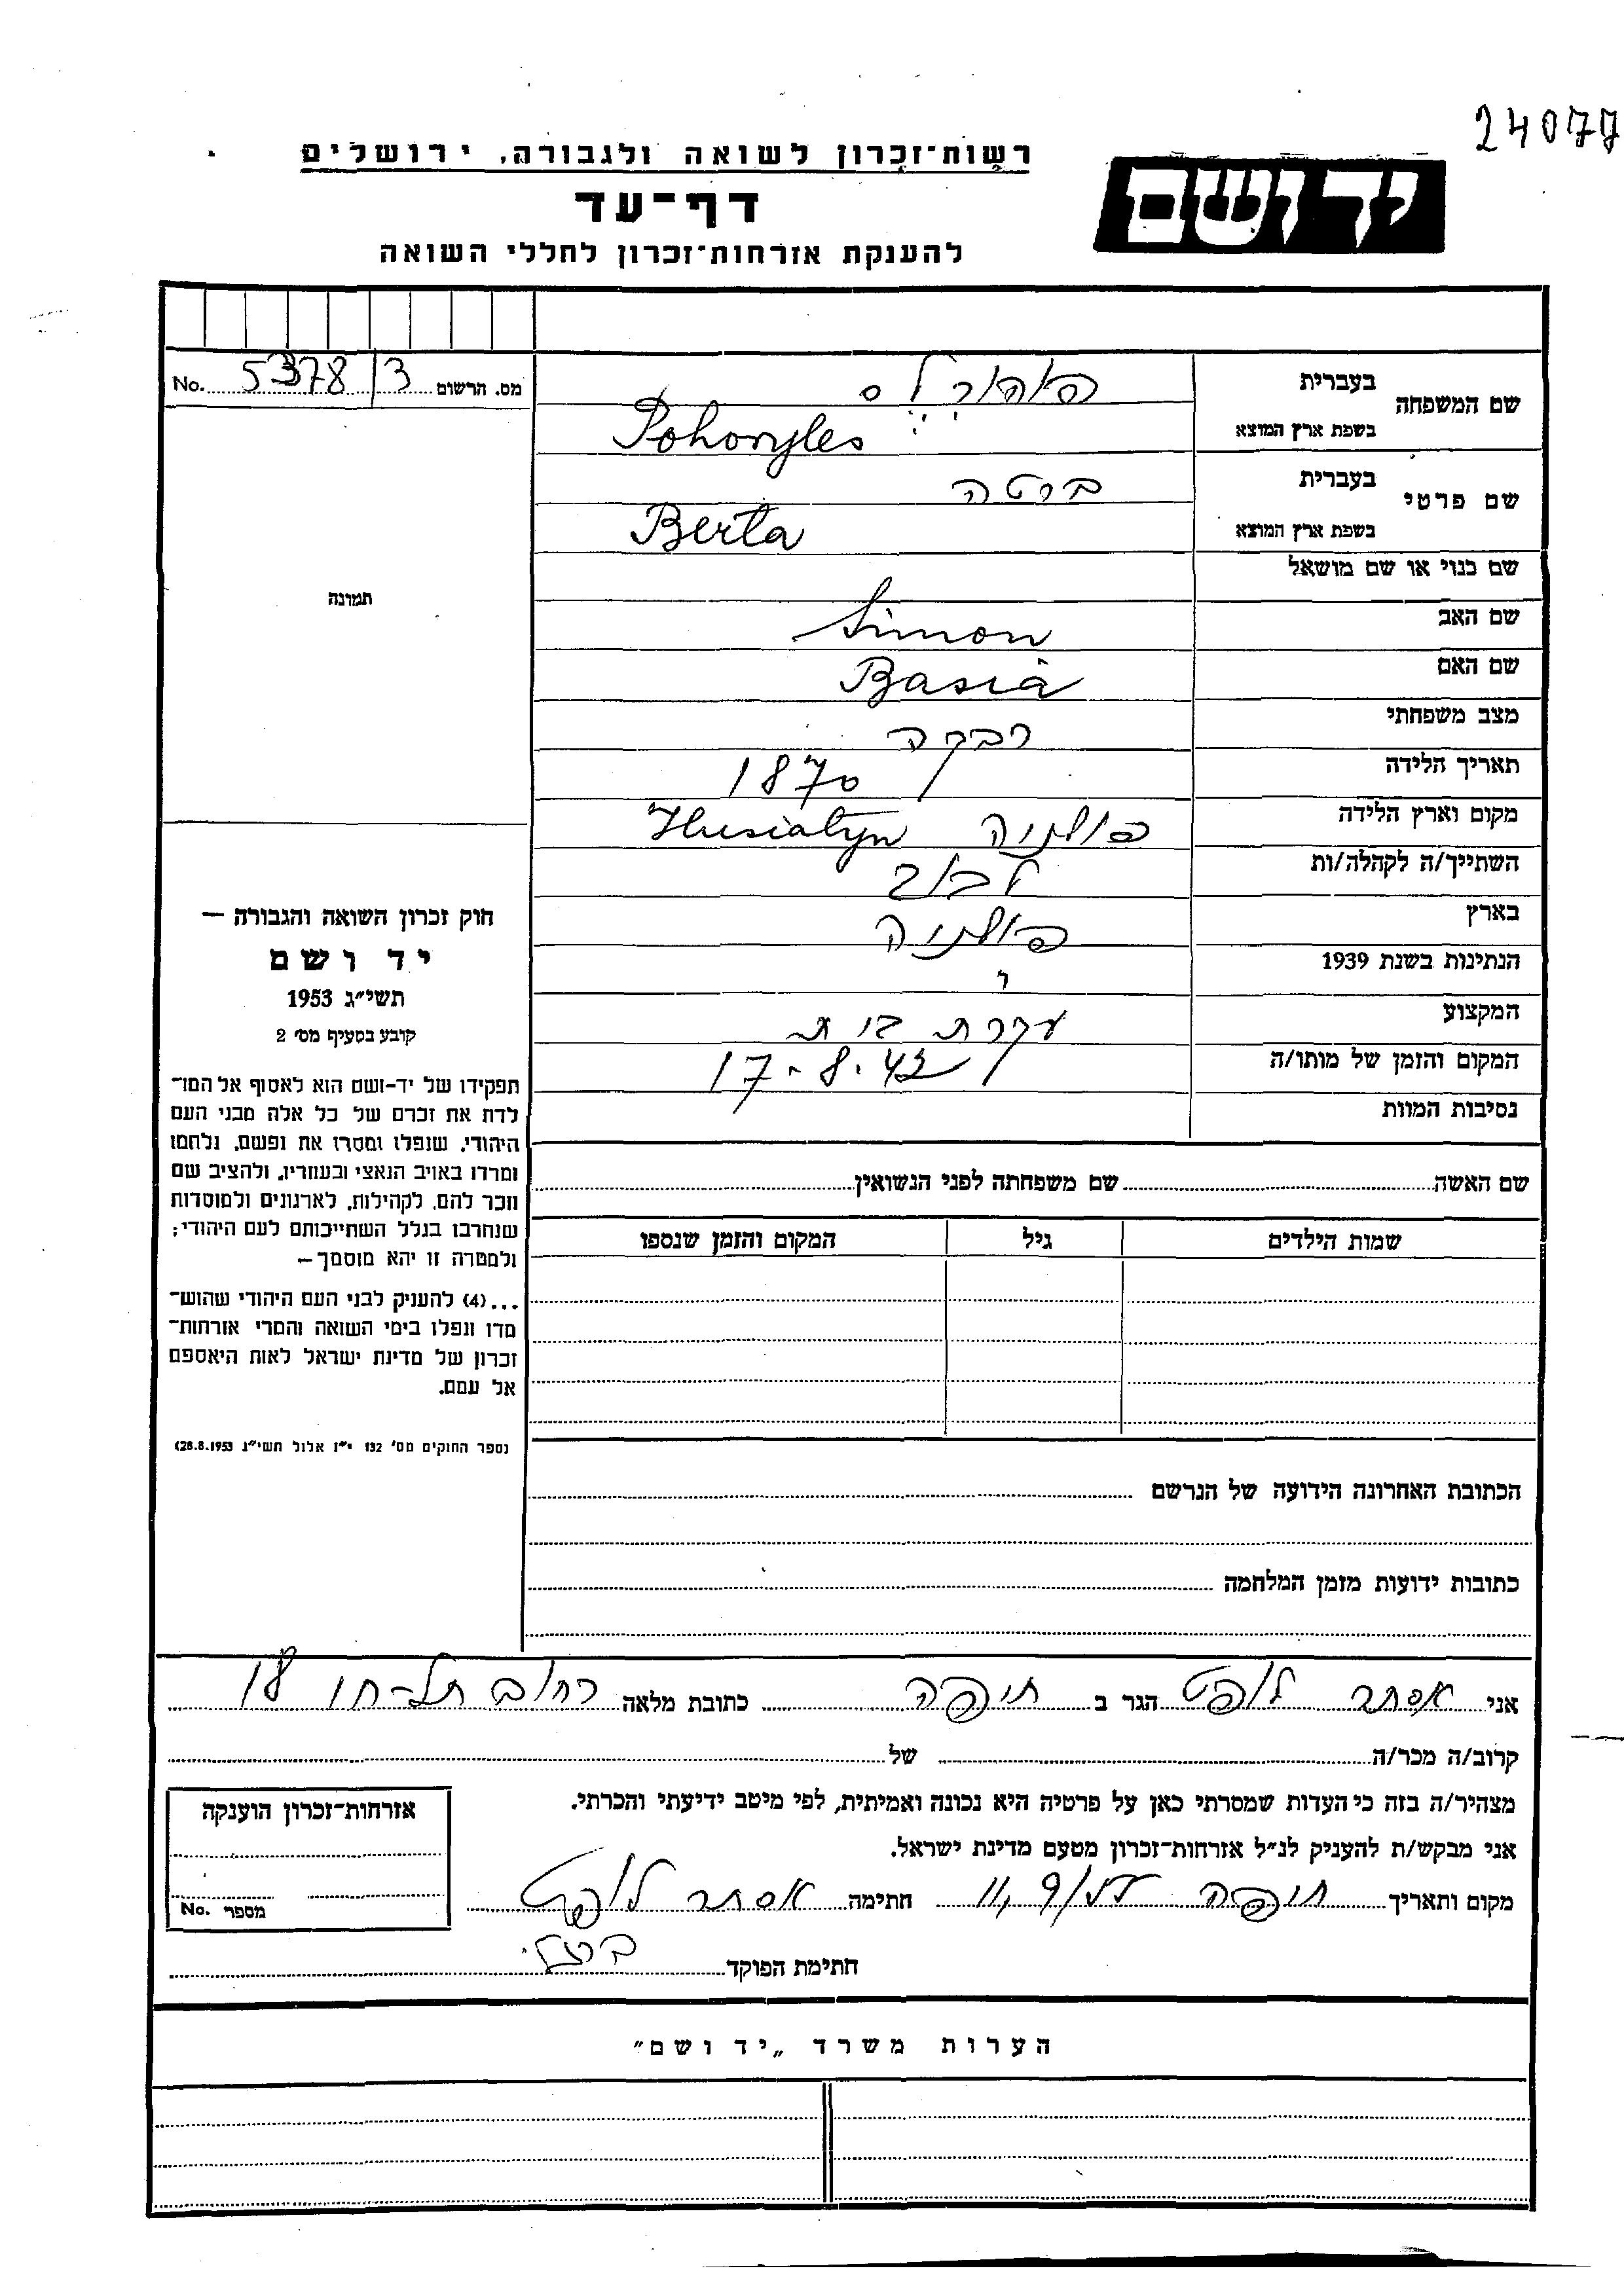 24077
רשות־זכרון לשואה ולגבורה, ירושלים
יד ושם
דף־עד
להענקת אזרחות־זכרון לחללי השואה
מס. הרשום 5378/3 No.
שם המשפחה
בעברית פוהורילס
בשפת ארץ המוצא Pohoryles
שם פרטי
בעברית ברטה
בשפת ארץ המוצא Berta
שם כנוי או שם מושאל
שם האב Simon
שם האם Basia
מצב משפחתי
תאריך הלידה 1870
מקום וארץ הלידה פולניה Husiatyn
השתייך/ה לקהלה/ות לבוב
בארץ פולניה
הנתינות בשנת 1939
המקצוע עקרת בית
המקום והזמן של מותו/ה 17.8.42
נסיבות המוות
תמונה
חוק זכרון השואה והגבורה —
יד ושם
תשי״ג 1953
קובע בסעיף מס׳ 2
תפקידו של יד-ושם הוא לאסוף אל המו־
לדת את זכרם של כל אלה מבני העם
היהודי, שנפלו ומסרו את נפשם, נלחמו
ומרדו באויב הנאצי ובעוזריו, ולהציב שם
וזכר להם, לקהילות, לארגונים ולמוסדות
שנחרבו בגלל השתייכותם לעם היהודי;
ולמטרה זו יהא מוסמך —
...(4) להעניק לבני העם היהודי שהוש־
מדו ונפלו בימי השואה והמרי אזרחות־
זכרון של מדינת ישראל לאות היאספם
אל עמם.
(ספר החוקים מס׳ 132 י״ז אלול תשי״ג 28.8.1953)
שם האשה שם משפחתה לפני הנשואין
שמות הילדים גיל המקום והזמן שנספו
הכתובת האחרונה הידועה של הנרשם
כתובות ידועות מזמן המלחמה
אני אסתר ליפט הגר ב חיפה כתובת מלאה רחוב תל-חי 18
קרוב/ה מכר/ה של
מצהיר/ה בזה כי העדות שמסרתי כאן על פרטיה היא נכונה ואמיתית, לפי מיטב ידיעתי והכרתי.
אני מבקש/ת להעניק לנ״ל אזרחות־זכרון מטעם מדינת ישראל.
מקום ותאריך חיפה חתימה אסתר ליפט
חתימת הפוקד
אזרחות־זכרון הוענקה
מספר No.
הערות משרד „יד ושם״